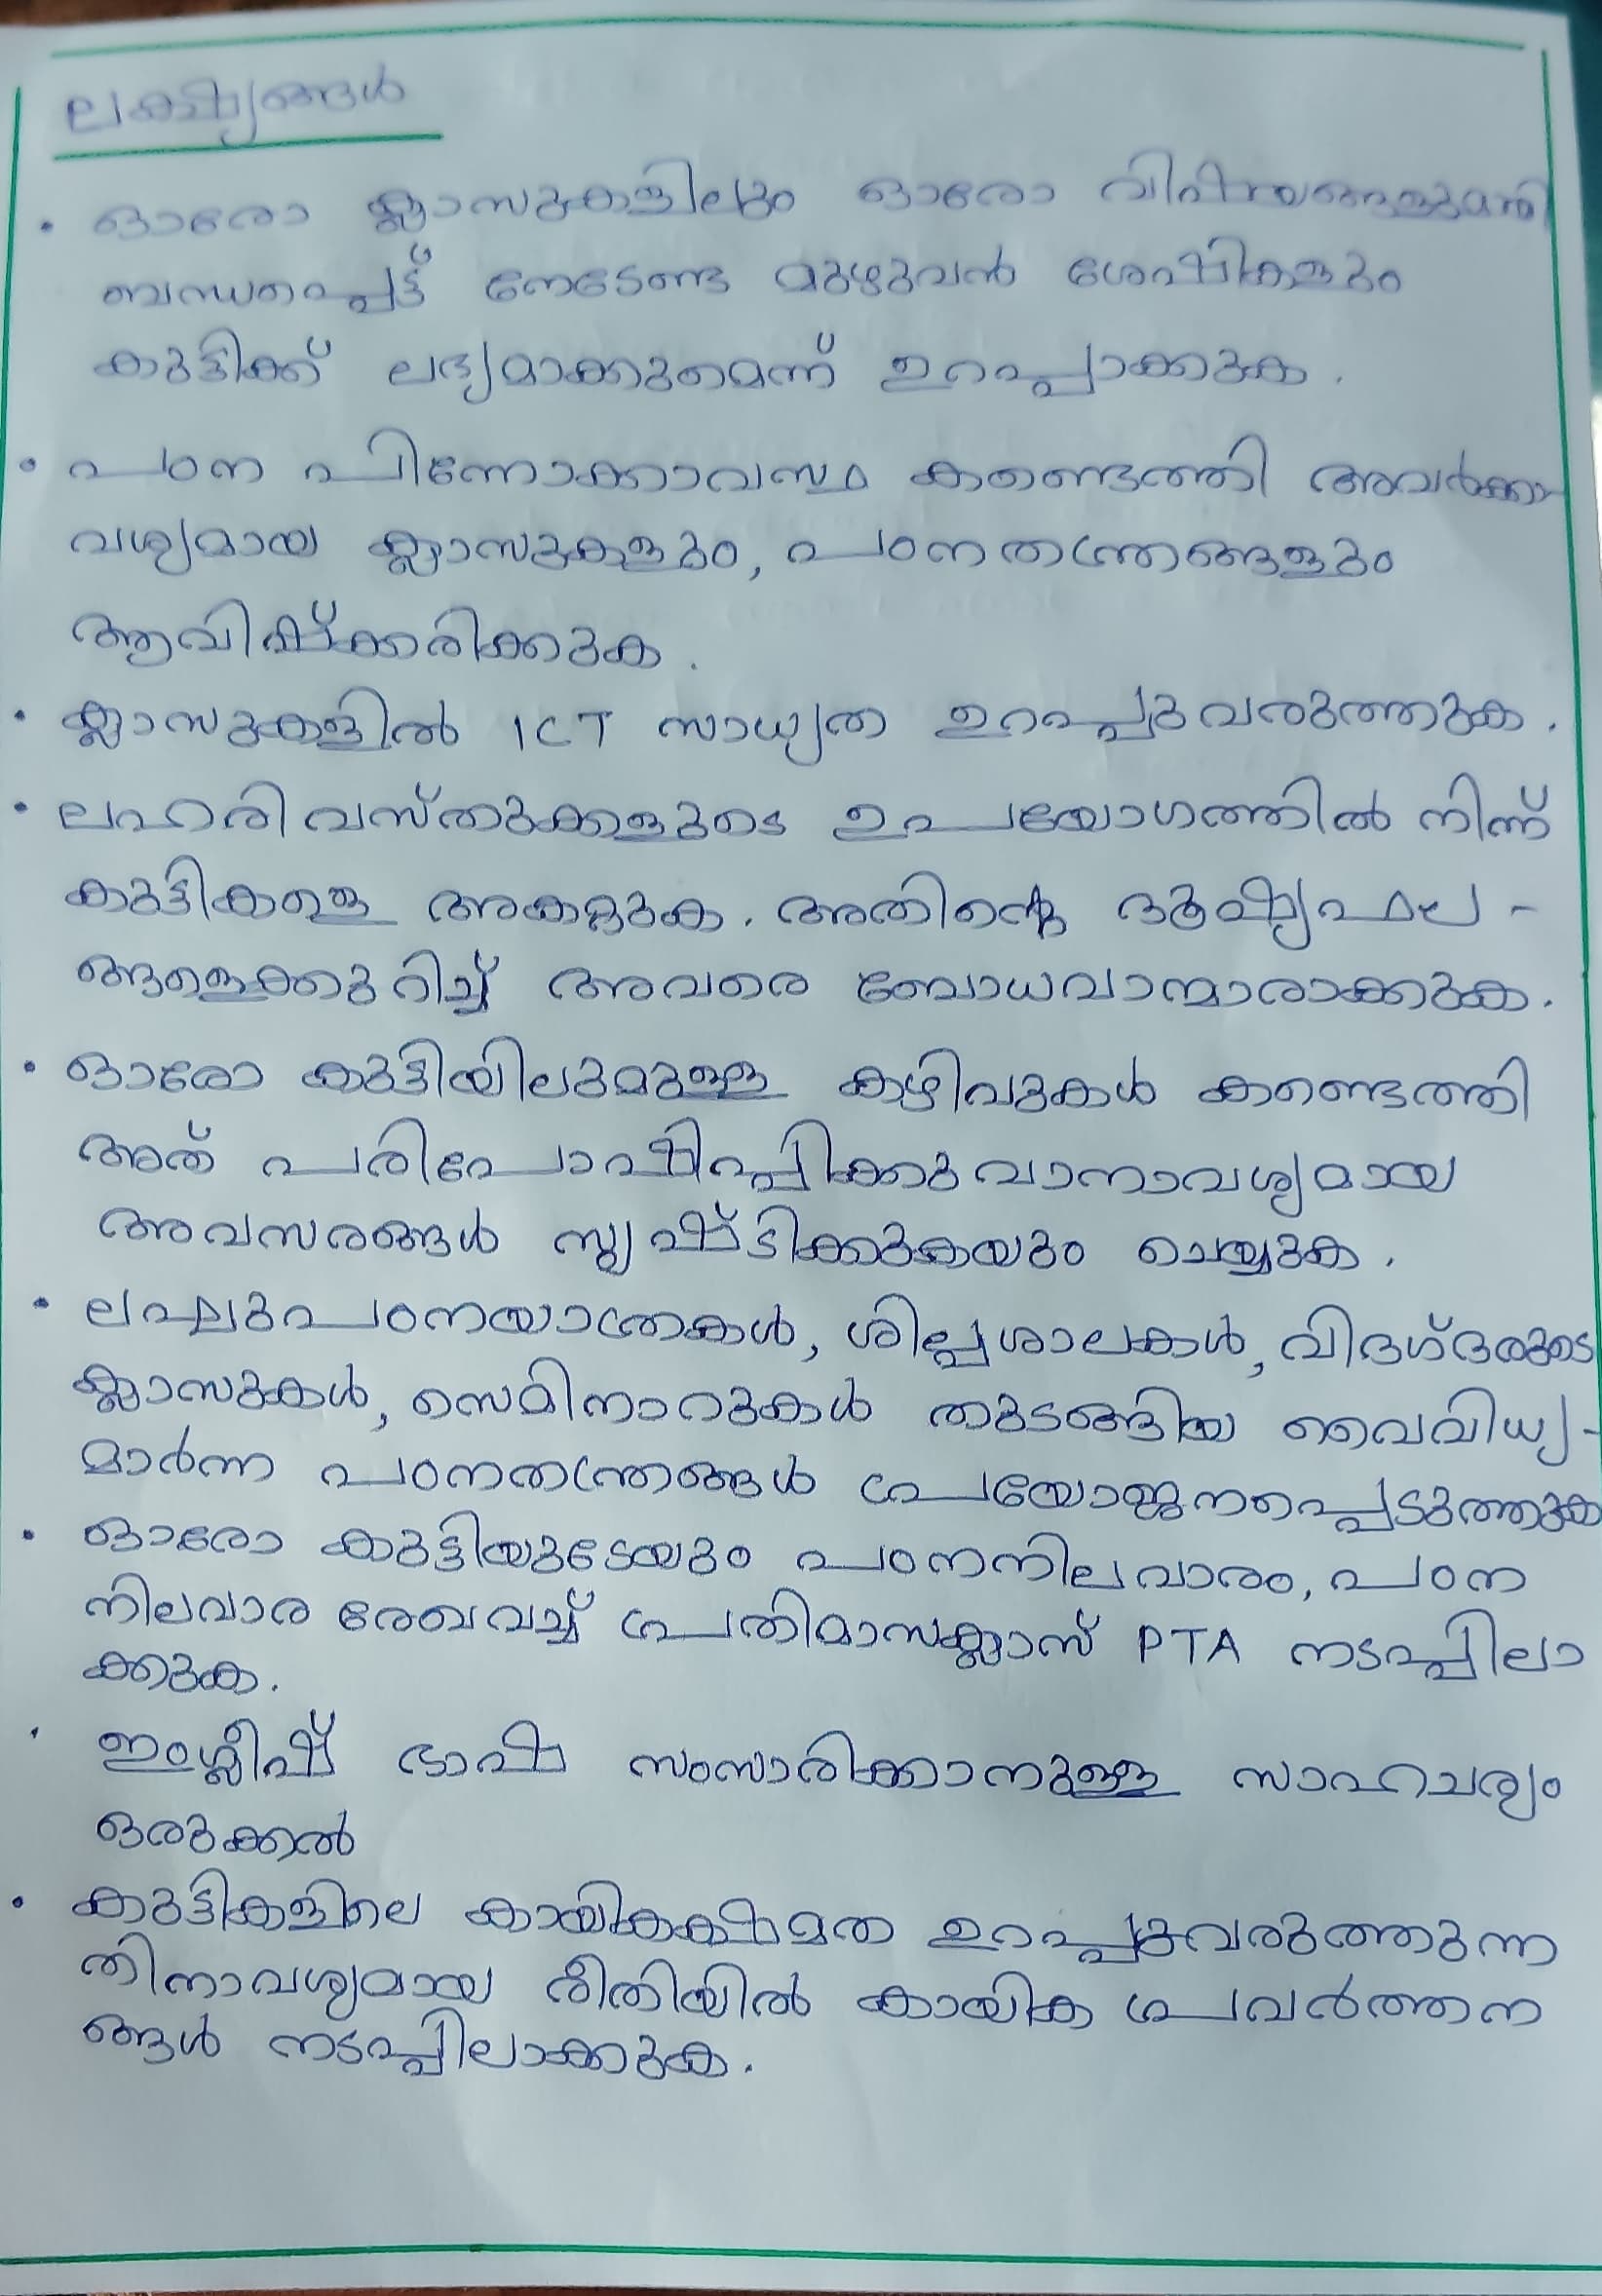 ലക്ഷ്യങ്ങൾ
• ഓരോ ക്ലാസുകളിലും ഓരോ വിഷയങ്ങളുമായി
ബന്ധപ്പെട്ട് നേടേണ്ട മുഴുവൻ ശേഷികളും
കുട്ടിക്ക് ലഭ്യമാക്കുമെന്ന് ഉറപ്പാക്കുക.
• പഠന പിന്നോക്കാവസ്ഥ കണ്ടെത്തി അവർക്കാ-
വശ്യമായ ക്ലാസുകളും, പഠനതന്ത്രങ്ങളും
ആവിഷ്ക്കരിക്കുക.
• ക്ലാസുകളിൽ ICT സാധ്യത ഉറപ്പുവരുത്തുക.
• ലഹരിവസ്തുക്കളുടെ ഉപയോഗത്തിൽ നിന്ന്
കുട്ടികളെ അകറ്റുക. അതിന്റെ ദൂഷ്യഫല-
ങ്ങളെക്കുറിച്ച് അവരെ ബോധവാന്മാരാക്കുക.
• ഓരോ കുട്ടിയിലുമുള്ള കഴിവുകൾ കണ്ടെത്തി
അത് പരിപോഷിപ്പിക്കുവാനാവശ്യമായ
അവസരങ്ങൾ സൃഷ്ടിക്കുകയും ചെയ്യുക.
• ലഘുപഠനയാത്രകൾ, ശില്പശാലകൾ, വിദഗ്ദരുടെ
ക്ലാസുകൾ, സെമിനാറുകൾ തുടങ്ങിയ വൈവിധ്യ-
മാർന്ന പഠനതന്ത്രങ്ങൾ പ്രയോജനപ്പെടുത്തുക
• ഓരോ കുട്ടിയുടേയും പഠനനിലവാരം, പഠന
നിലവാര രേഖവച്ച് പ്രതിമാസക്ലാസ് PTA നടപ്പിലാ
ക്കുക.
• ഇംഗ്ലീഷ് ഭാഷ സംസാരിക്കാനുള്ള സാഹചര്യം
ഒരുക്കൽ
• കുട്ടികളിലെ കായികക്ഷമത ഉറപ്പുവരുത്തുന്ന
തിനാവശ്യമായ രീതിയിൽ കായിക പ്രവർത്തന
ങ്ങൾ നടപ്പിലാക്കുക.